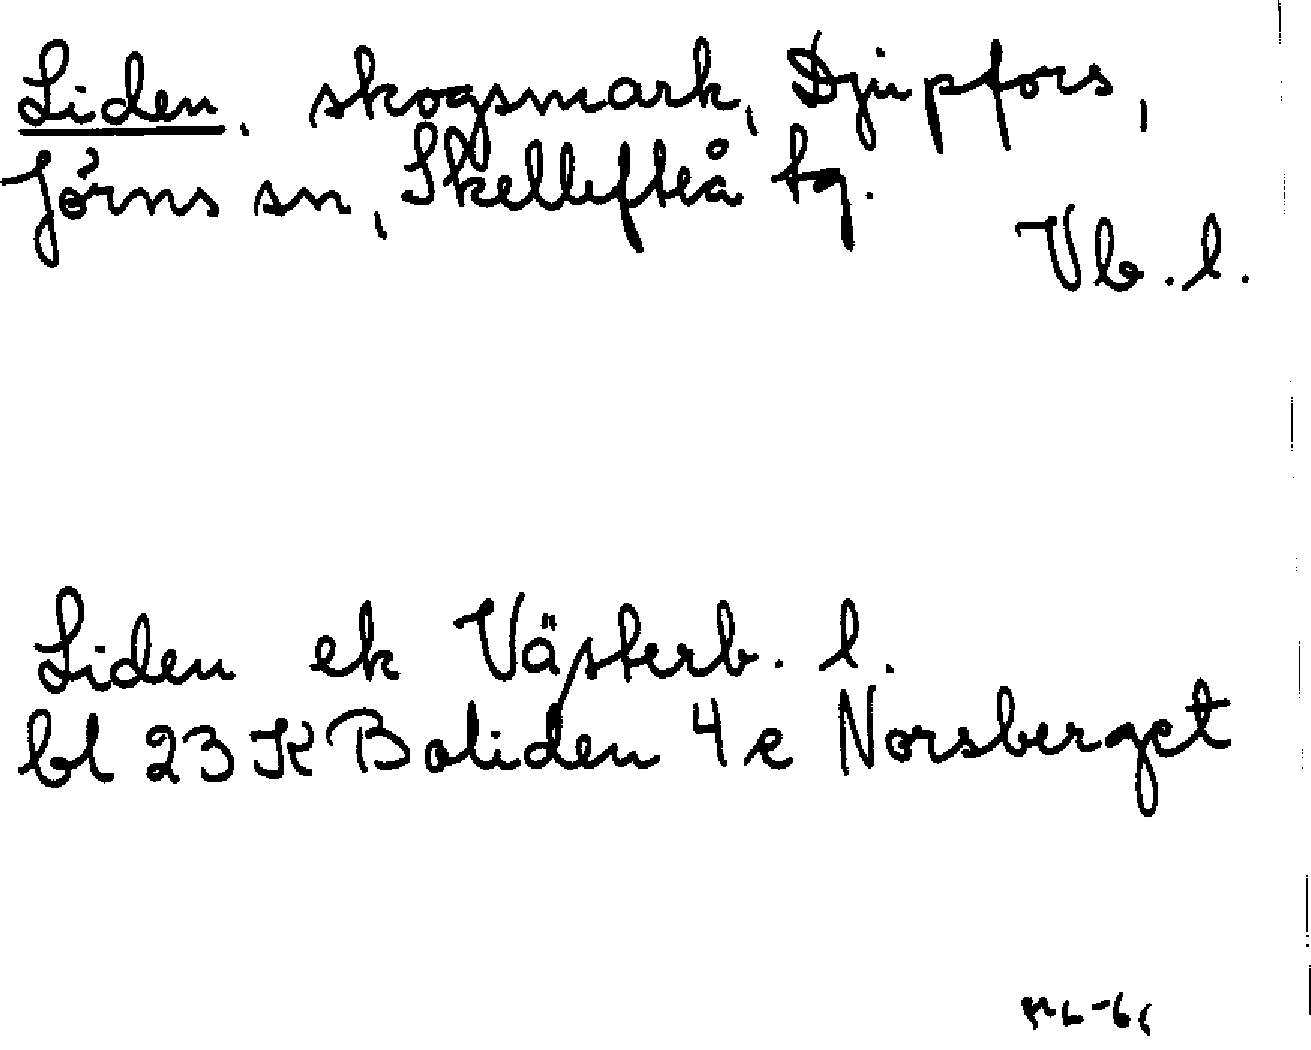 Liden, skogsmark, Djupfors,
Jörns sn, Skellefteå tg.
Vb. l.
Liden ek Västerb. l.
bl 23 K Boliden 4 e Norsberget